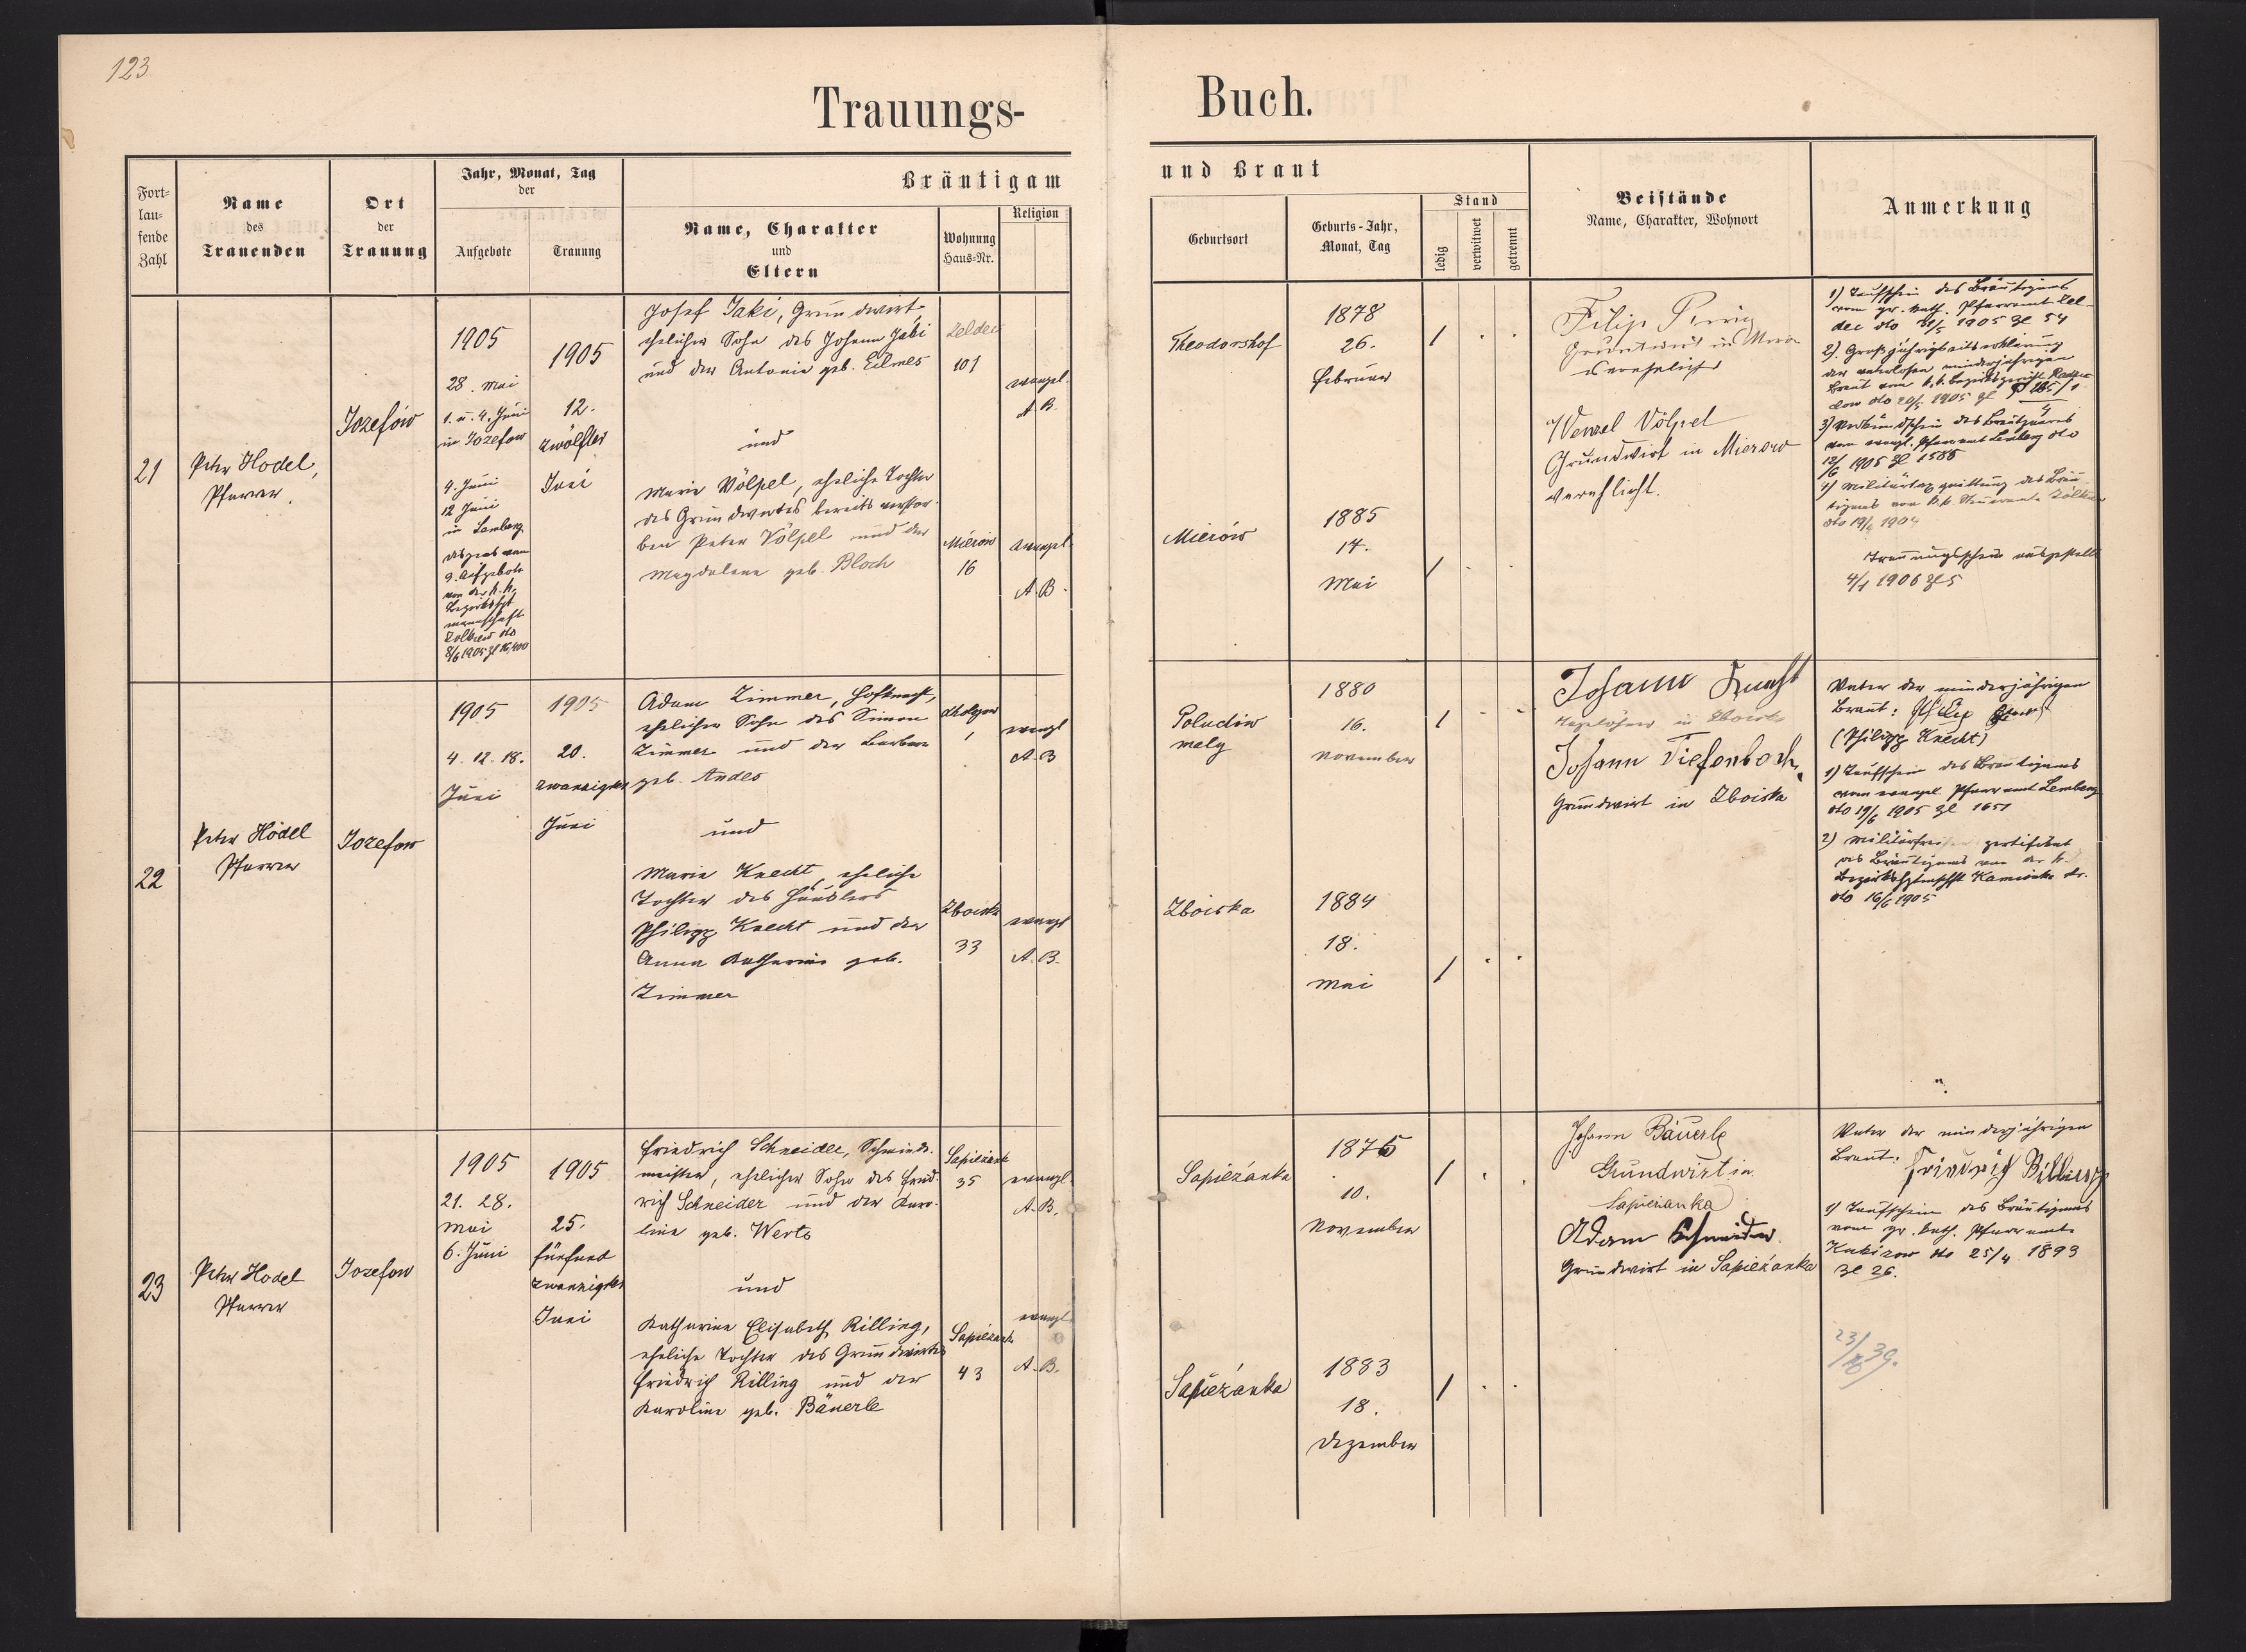 123
Trauungs-
Buch.
Fort-
lau-
fende
Zahl
Name
des
Trauenden
Ort
der
Trauung
Jahr, Monat, Tag
der
Aufgebote
Trauung
Bräutigam
Name, Charakter
und
Eltern
Wohnung
Haus-Nr.
Religion
und Braut
Geburtsort
Geburts-Jahr,
Monat, Tag
Stand
ledig
verwitwet
getrennt
Beistände
Name, Charakter, Wohnort
Anmerkung
21
Peter Hodel,
Pfarrer.
Jozefów
1905
28. Mai
1. u. 4. Juni
in Jozefow
4. Juni
12 Juni
in Lemberg
Dispens vom
3. Aufgebote
von der k. k.
Bezirkshpt
mannschaft
Zolkiew dto
8/6 1905 Zl 16,400
1905
12.
zwölfter
Juni
Josef Jaki, Grundwirt
ehelicher Sohn des Johann Jaki
und der Antonie geb. Eilmes
und
Marie Völpel, eheliche Tochter
des Grundwirtes bereits verstor-
ben Peter Völpel und der
Magdalena geb. Bloch
101
evangel.
A. B.
Mierów
16
evangel.
A. B.
Theodorshof
1878
26.
Februar
Mierów
1885
14.
Mai
Filip
Grundwirt in
verehelicht
Wenzel Völpel
Grundwirt in Mierow
verehlicht.
1) Taufschein des Bräutigams
vom gr. kath. Pfarramt Zel-
dec dto 31/5 1905 Zl 54
2). Großjährigkeitserklärung
der vaterlosen minderjährigen
Braut vom k. k. Bezirksgericht
dto 20/5 1905 Zl
3) Verkündschein des Brautpaares
vom evangl. Pfarramt Lemberg dto
12/6 1905 Zl 1585
4) Militärtaxquittung des Bräu-
tigams vom k. k. Steueramte Zolkiew
dto 19/6 1904
Trauungsschein ausgestellt
4/1 1906 Zl 5
22
Peter Hodel
Pfarrer
Jozefow
1905
4. 12. 18.
Juni
1905
20.
zwanzigster
Juni
Adam Zimmer, Hofknecht,
ehelicher Sohn des Simon
Zimmer und der Barbara
geb. Andes
und
Marie Knecht, eheliche
Tochter des Häuslers
Philipp Knecht und der
Anna Katharina geb.
Zimmer
evangl
A. B
Zboiska
33
evangl
A. B.
Poludiow
maly
1880
16.
November
Zboiska
1884
18.
Mai
Johann Knecht
Tagelöhner in Zboiska
Johann Tiefenbach,
Grundwirt in Zboiska
Vater der minderjährigen
Braut:
(Philipp Knecht)
1) Taufschein des Bräutigams
vom evangel. Pfarramt Lemberg
dto 19/6 1905 Zl 1651
2) Militärfreiheitszertifikat
des Bräutigams von der k.
Bezirkshptmschft Kamionka str.
dto 16/6 1905
23
Peter Hodel
Pfarrer
Jozefow
1905
21. 28.
Mai
6. Juni
1905
25.
fünfund
zwanzigster
Juni
Friedrich Schneider, Schmiede-
meister, ehelicher Sohn des Fried-
rich Schneider und der Karo-
line geb. Werts
und
Katharina Elisabeth Rilling,
eheliche Tochter des Grundwirtes
Friedrich Rilling und der
Karoline geb. Bäuerle
Sapieżank
35
evangl.
A. B.
Sapieżank
43
evangl.
A. B.
Sapieżanka
1875
10.
November
Sapieżanka
1883
18.
Dezember
Johann Bäuerle
Grundwirt in
Sapieżanka
Adam Schneider
Grundwirt in Sapieżanka
Vater der minderjährigen
Braut: Friedrich Rilling
1) Taufschein des Bräutigams
vom gr. kath. Pfarramte
Kukizow dto 25/4 1893
Zl 26.